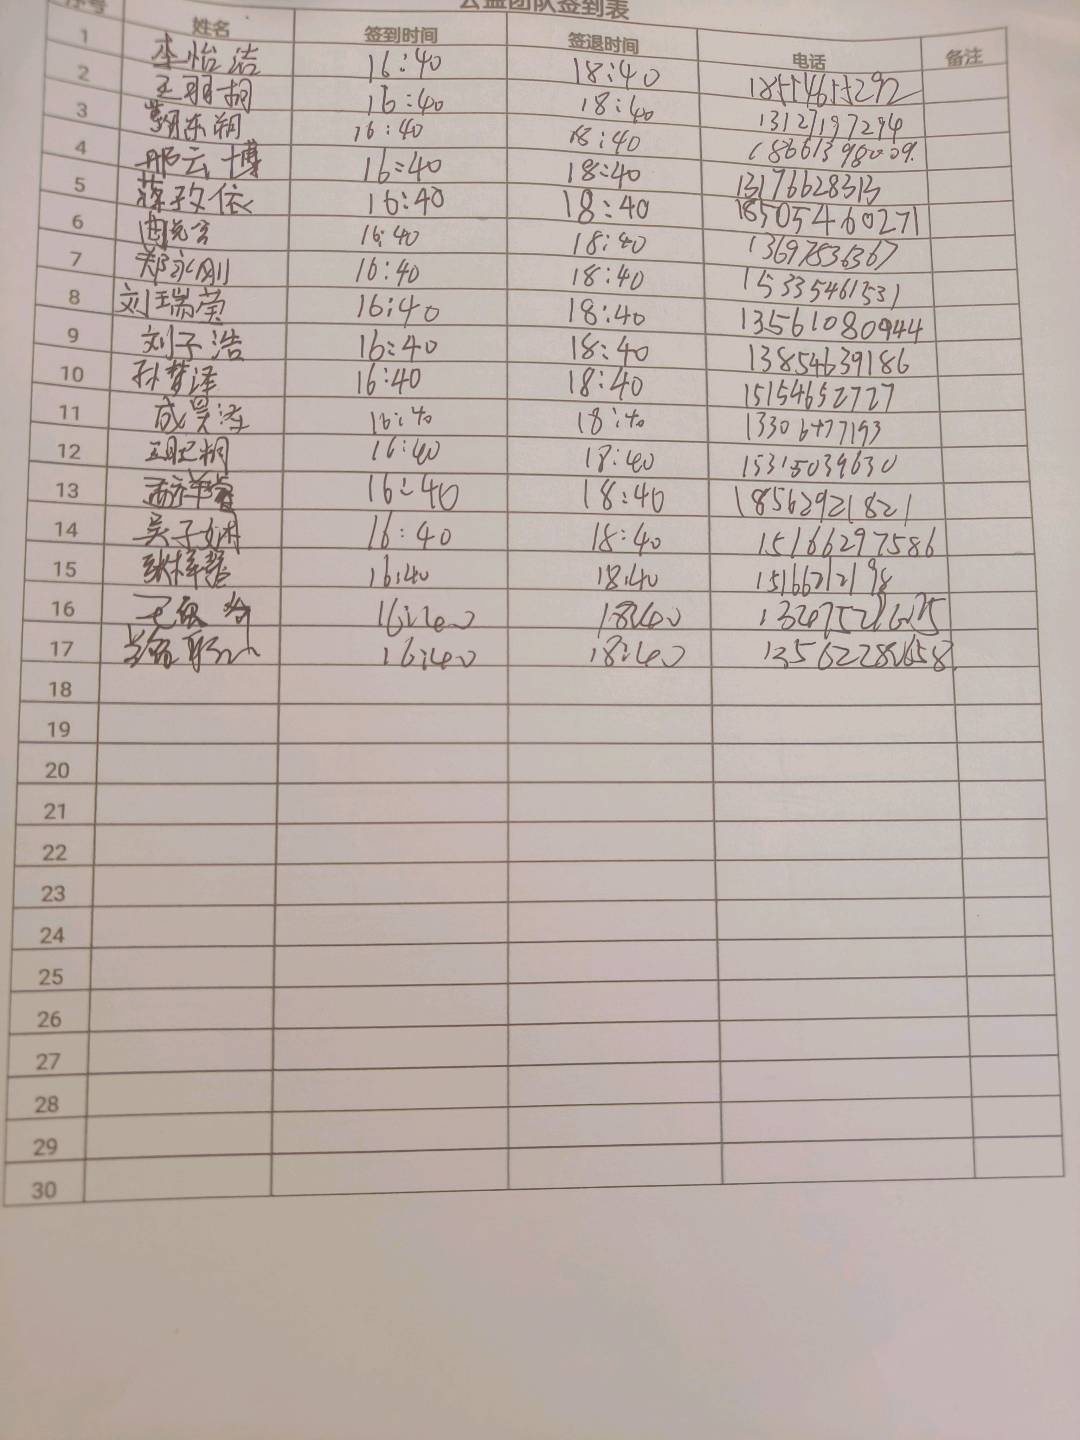 公益团队签到表
序号 姓名 签到时间 签退时间 电话 备注
1 李怡洁 16:40 18:40 18554655292
2 王羽桐 16:40 18:40 13127197294
3 16:40 18:40 18661398009
4 邢云博 16:40 18:40 13176628313
5 薛玫依 16:40 18:40 18505460271
6 16:40 18:40 13697836367
7 郑永刚 16:40 18:40 15335461531
8 刘瑞莹 16:40 18:40 13561080944
9 刘子浩 16:40 18:40 13854639186
10 孙梦泽 16:40 18:40 15154652727
11 成昊泽 16:40 18:40 13306477193
12 16:40 18:40 15315039630
13 16:40 18:40 18562921821
14 吴子娴 16:40 18:40 15166297586
15 16:40 18:40 15166212198
16 16:40 18:40
17 16:40 18:40
18
19
20
21
22
23
24
25
26
27
28
29
30